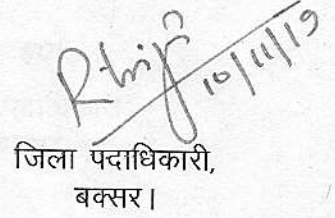 10/11/19
जिला पदाधिकारी,
बक्सर।